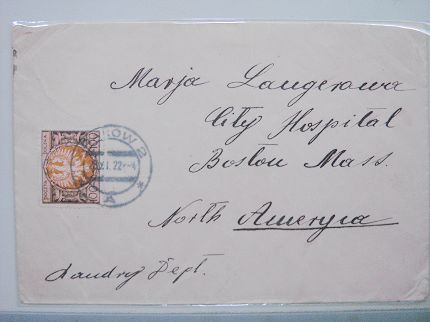 Marja Langerowa
City Hospital
Boston Mass.
North Ameryca
Laundry Dept.
100 100
OW 2
XI. 22